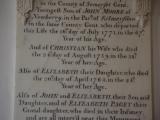 in the County of Somerset Gent.
Youngest Son of JOHN MOORE of
Newberry, in the Par. of
in the same County Gent. who departed
this Life the of July 1771 in the
Year of his Age.
And of CHRISTIAN his Wife who died
the 2d of August 1759 in the
Year of her Age.
Also of ELIZABETH their Daughter who died
the of April 1762 in the 2d
Year of her Age.
Also of JOHN and ELIZABETH their Son and
Daughter, and of ELIZABETH PAGET their
Grand Daughter, who died in their Infancy
and are all interr'd near this Monument